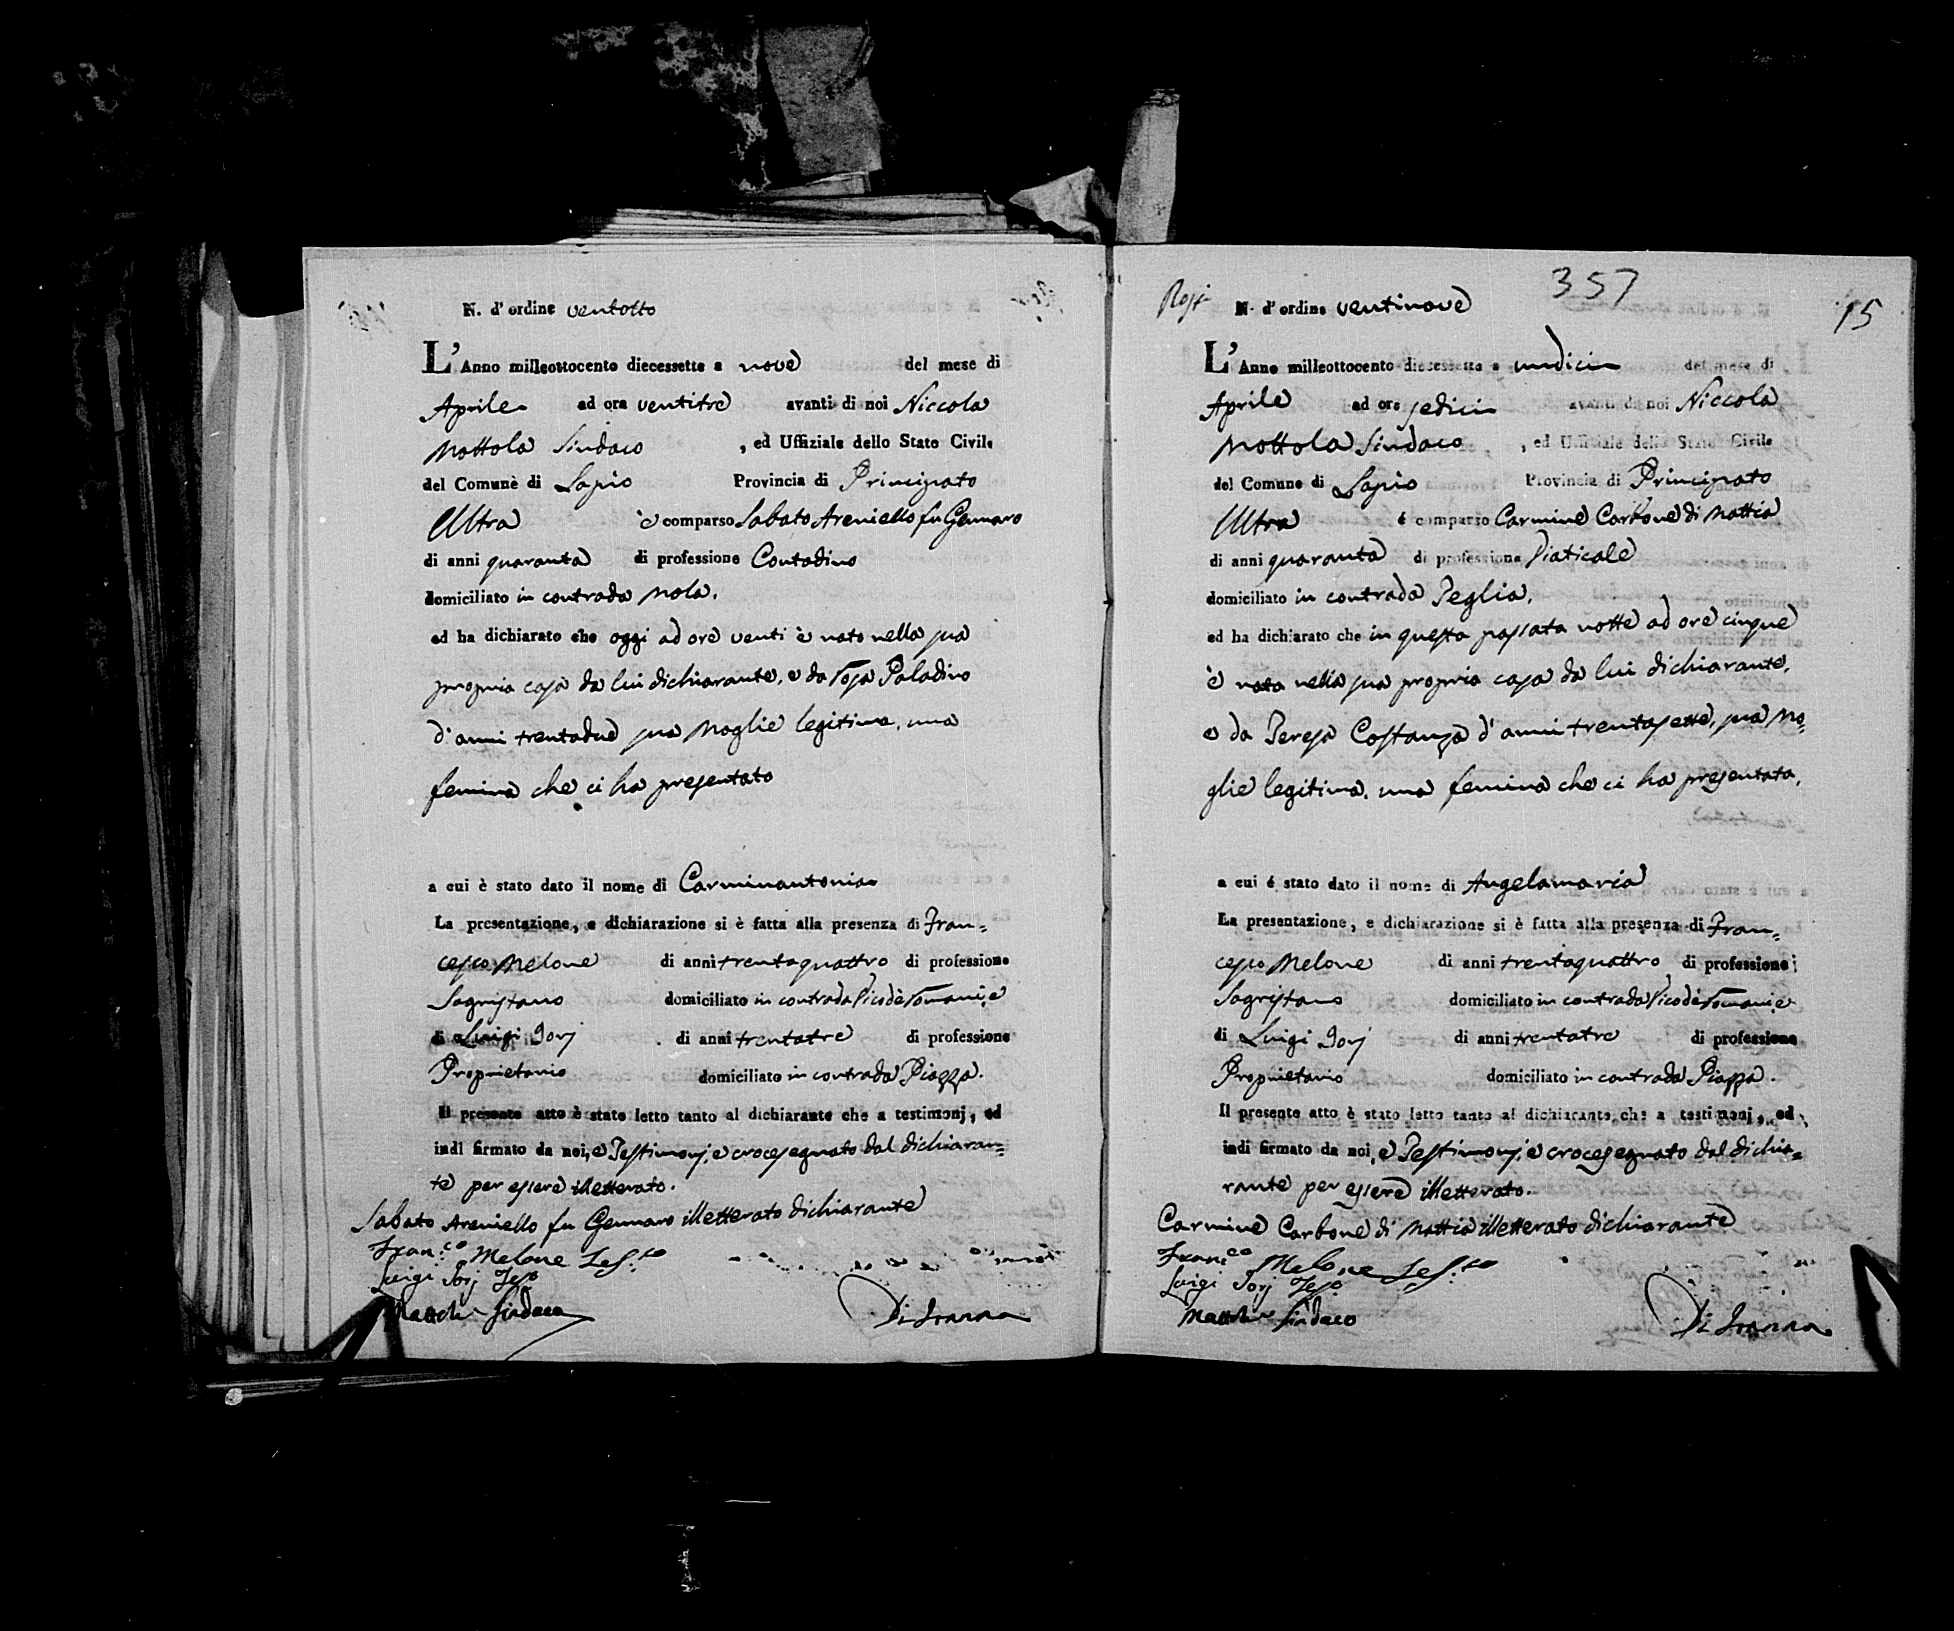 N. d'ordine ventotto
L'Anno milleottocento diecessette a nove del mese di
Aprile ad ora ventitre avanti di noi Niccola
Mottola Sindaco , ed Uffiziale dello Stato Civile
del Comune di Lapio Provincia di Principato
Ultra è comparso Sabato Areniello fu Gennaro
di anni quaranta di professione Contadino
domiciliato in contrada Nola.
ed ha dichiarato che oggi ad ore venti è nato nella sua
propria casa da lui dichiarante, e da Rosa Paladino
d'anni trentadue sua Moglie legitima, una
femina che ci ha presentato
a cui è stato dato il nome di Carminantonia
La presentazione, e dichiarazione si è fatta alla presenza di Fran=
cesco Melone di anni trentaquattro di professione
Sagristano domiciliato in contrada Vico de Romani, e
di Luigi Iorj di anni trentatre di professione
Proprietario domiciliato in contrada Piazza.
Il presente atto è stato letto tanto al dichiarante che a testimonj, ed
indi firmato da noi, e Testimonj, e crocesegnato dal dichiaran=
te per essere illetterato.
Sabato Areniello fu Gennaro illetterato dichiarante
Fran.co Melone Tes.to
Luigi Iorj Teso
Mattola Sindaco
Di Ioanna
357
15
N. d'ordine ventinove
L'Anno milleottocento diecessette a undici del mese di
Aprile ad ore sedici avanti di noi Niccola
Mottola Sindaco , ed Uffiziale dello Stato Civile
del Comune di Lapio Provincia di Principato
Ultra é comparso Carmine Carbone di Mattia
di anni quaranta di professione Viaticale
domiciliato in contrada Teglia.
ed ha dichiarato che in questa passata notte ad ore cinque
è nata nella sua propria casa da lui dichiarante,
e da Teresa Costanza d'anni trentasette, sua Mo=
glie legitima, una femina che ci ha presentata,
a cui é stato dato il nome di Angelamaria
La presentazione, e dichiarazione si è fatta alla presenza di Fran=
cesco Melone di anni trentaquattro di professione
Sagristano domiciliato in contrada Vico de Romani, e
di Luigi Iorj di anni trentatre di professione
Proprietario domiciliato in contrada Piazza.
Il presente atto è stato letto tanto al dichiarante, che a testimonj, ed
indi firmato da noi, e Testimonj, e crocesegnato dal dichia=
rante per essere illetterato.
Carmine Carbone di Mattia illetterato dichiarante
Fran.co Melone Tes.to
Luigi Iorj Teso
Mattola Sindaco
Di Ioanna